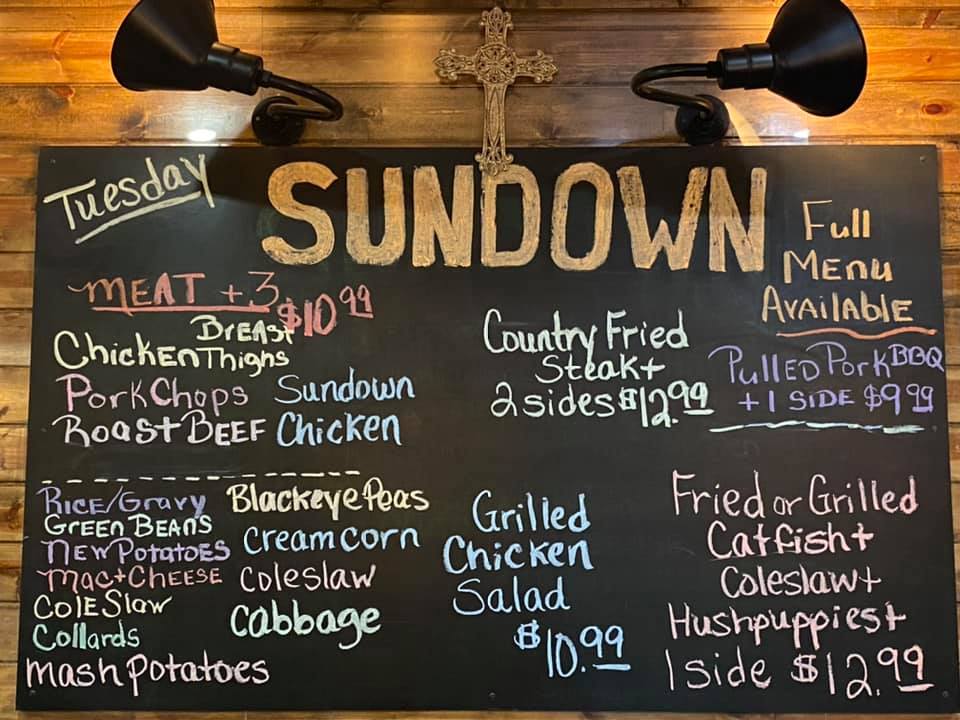 Tuesday
SUNDOWN
Full
MEnu
AVAILABLE
MEAT +3 $10.99
BrEAst
ChickEn Thighs
Pork Chops
Roast BEEF
Sundown
Chicken
Country Fried
Steak +
2 sides $12.99
PullED Pork BBQ
+ 1 SIDE $9.99
RicE/Gravy
GREEN BEANS
NEW POTATOES
Mac+CHEESE
ColE Slaw
Collards
mash Potatoes
Blackeye Peas
Cream Corn
Coleslaw
Cabbage
Grilled
Chicken
Salad
$10.99
Fried or Grilled
Catfish +
Coleslaw +
Hushpuppies +
1 side $12.99